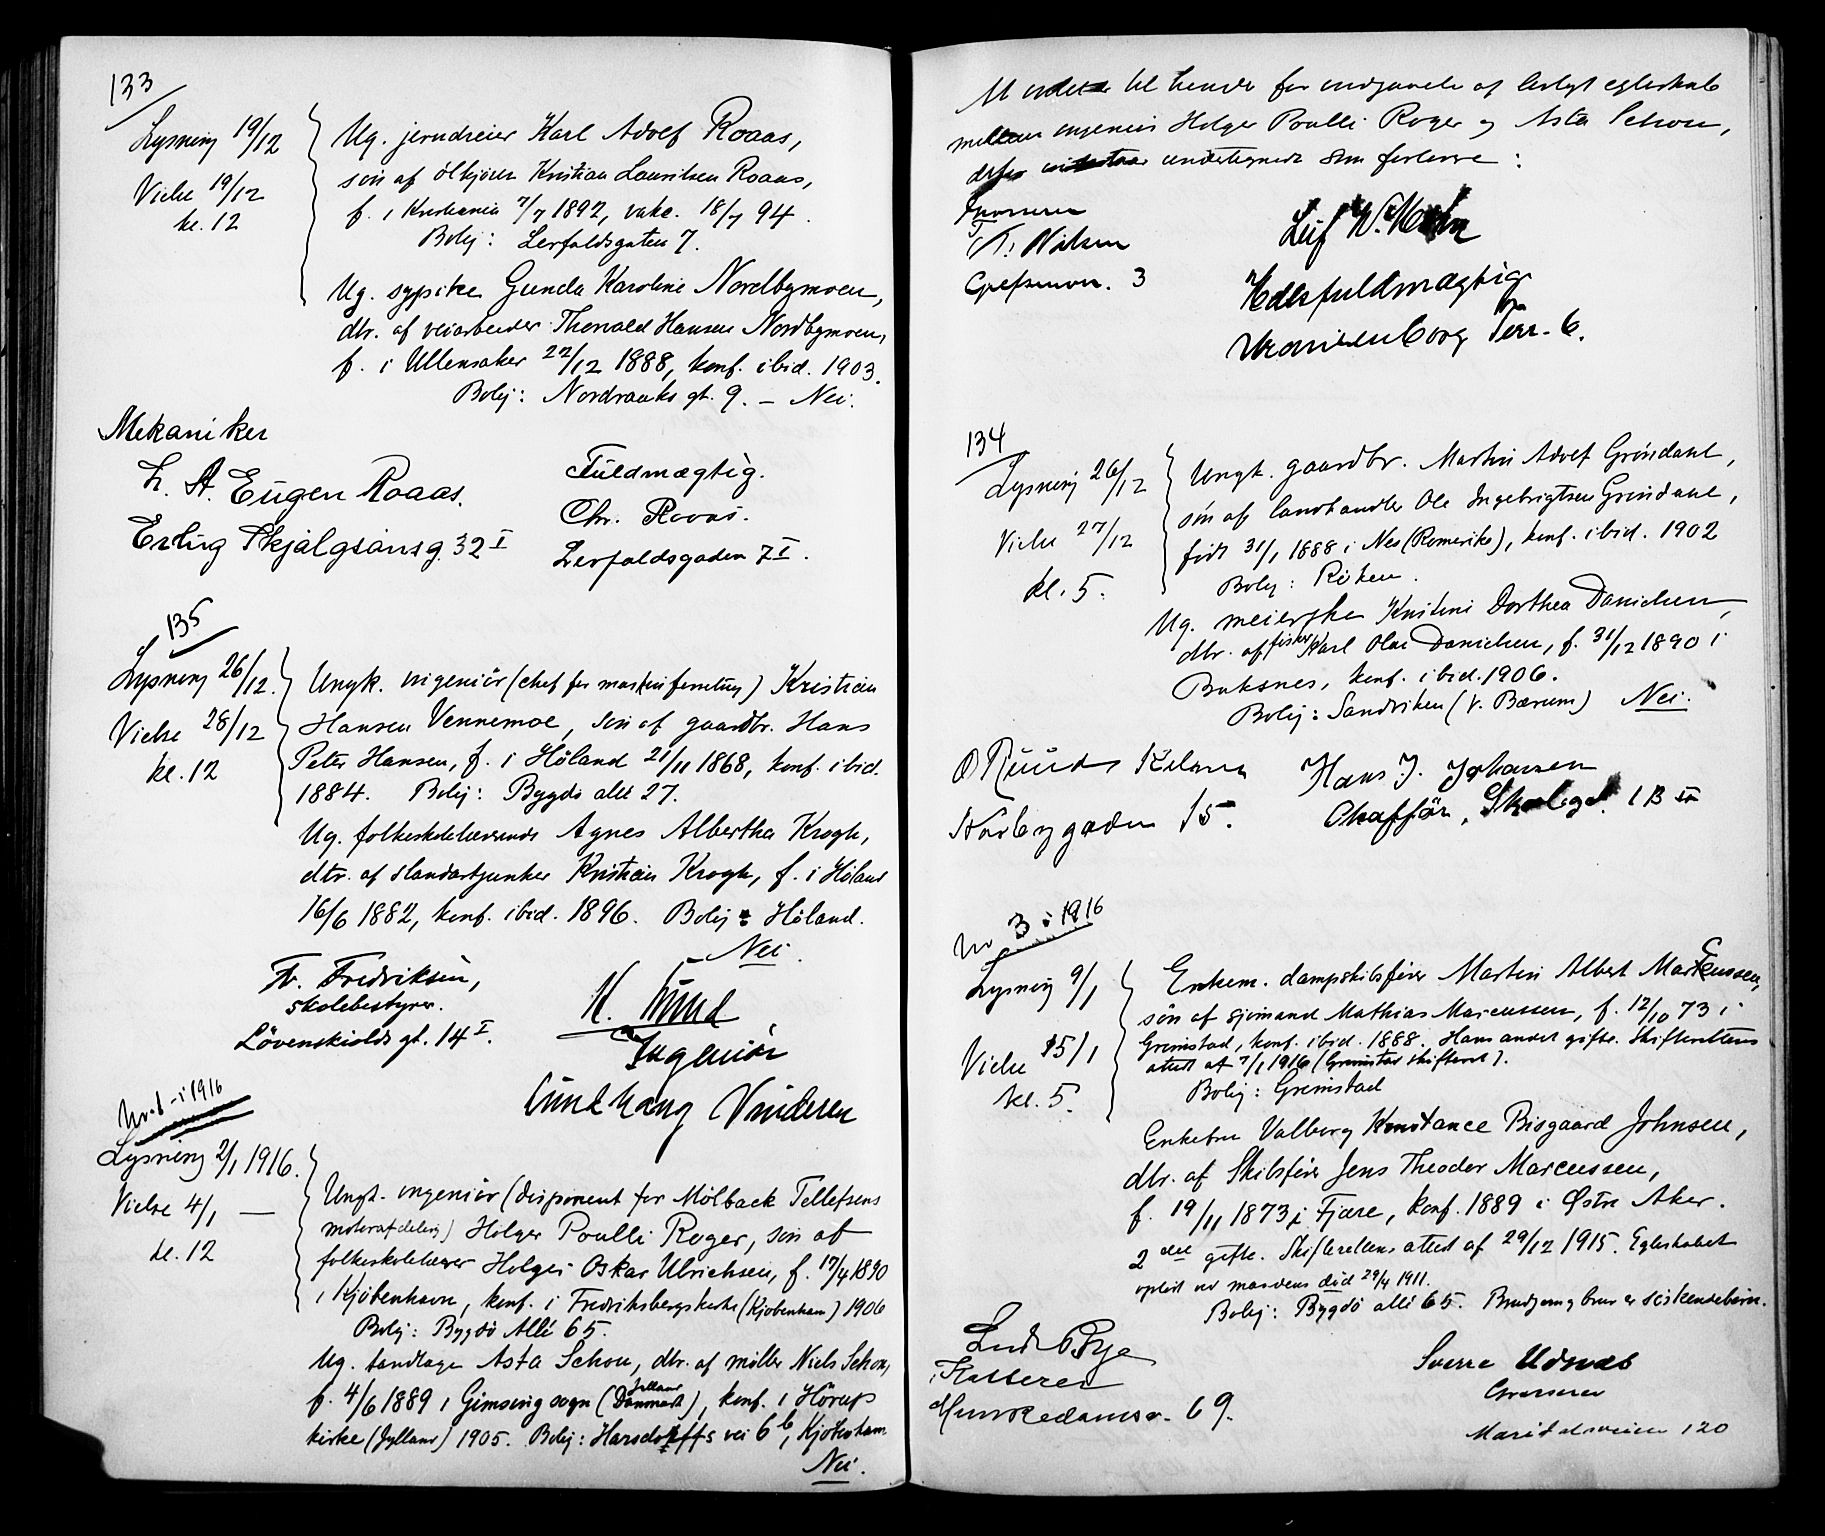 133
Lysning 19/12
Vielse 19/12
kl. 12
Ug. jerndreier Karl Adolf Roaas,
søn af ølkjører Kristian Lauritsen Roaas,
f. i Kristiania 7/7 1892, vakc. 18/7 94.
Bolig: Lerfaldsgaten 7.
Ug. sypike Gunda Karoline Nordbymoen,
dtr. af veiarbeider Thorvald Hansen Nordbymoen,
f. i Ullensaker 22/12 1888, konf. ibid. 1903.
Bolig: Nordraaks gt. 9. – Nei.
Mekaniker
L. A. Eugen Roaas.
Erling Skjalgsønsg. 32 I
Fuldmægtig.
Chr. Roaas.
Lerfaldsgaden 7 I.
135
Lysning 26/12.
Vielse 28/12
kl. 12
Ungk. ingeniør (chef for maskinforretning) Kristian
Hansen Vennemoe, søn af gaardbr. Hans
Peter Hansen, f. i Høland 21/11 1868, konf. ibid.
1884. Bolig: Bygdø allé 27.
Ug. folkeskolelærerinde Agnes Albertha Krogh,
dtr. af standartjunker Kristian Krogh, f. i Høland
16/6 1882, konf. ibid. 1896. Bolig: Høland.
– Nei.
Fr. Fredriksen,
skolebestyrer.
Løvenskiolds gt. 14 I.
K. Lund
Ingeniør
Lundhaug Vinderen
Nr. 1 – i 1916
Lysning 2/1 1916.
Vielse 4/1 —
kl. 12
Ungk. ingeniør (disponent for Mølback Tellefsens
motorafdeling) Holger Poulli Roger, søn af
folkeskolelærer Holger Oskar Ulrichsen, f. 17/4 1890
i Kjøbenhavn, konf. i Fredriksbergs kirke (Kjøbenhavn) 1906
Bolig: Bygdø Allé 65.
Ug. tandlæge Asta Schou, dtr. af møller Niels Schou,
f. 4/6 1889 i Gimsing sogn (Jylland Danmark), konf. i Hörup
kirke (Jylland) 1905. Bolig: Harsdorffs vei 6 b, Kjøbenhavn
Nei.
til hinder for indgaaelse af lovligt egteskab
mellem ingeniør Holger Poulli Roger og Asta Schou,
derfor undertegnede som forlovere:
T. Nilsen
Grefsenvn. 3
Leif W.
Uranienborg Terr. 6.
134
Lysning 26/12
Vielse 27/12
kl. 5.
Ungk. gaardbr. Martin Adolf Grindahl,
søn af landhandler Ole Ingebrigtsen Grindahl,
født 31/1 1888 i Nes (Romerike), konf. ibid. 1902
Bolig: Röken.
Ug. meierske Kristine Dorthea Danielsen,
dtr. af fisker Karl Olai Danielsen, f. 31/12 1890 i
Buksnes, konf. ibid. 1906.
Bolig: Sandviken (V. Bærum) Nei.
O Ruud
Norbygaden 15.
Hans J. Johansen
Chafför, 1 B
Nr 3 i 1916
Lysning 9/1
Vielse 15/1
kl. 5.
Enkem. dampskibsfører Martin Albert Markussen,
søn af sjømand Mathias Marcussen, f. 12/10 73 i
Grimstad, konf. ibid. 1888. Hans andet gifte. Skifterettens
attest af 7/1 1916 (Grimstad skifteret).
Bolig: Grimstad
Enkefru Valborg Konstance Bisgaard Johnsen,
dtr. af Skibsfører Jens Theodor Marcussen,
f. 19/11 1873 i Fjære, konf. 1889 i Østre Aker.
2 det gifte. Skifterettens attest af 29/12 1915. Egteskabet
opløst ved mandens död 29/4 1911.
Bolig: Bygdø allé 65. Brudgom og brud er söskendebørn.
Kasserer
Munkedamsv. 69.
Sverre Udnæs
Grosserer
Maridalsveien 120